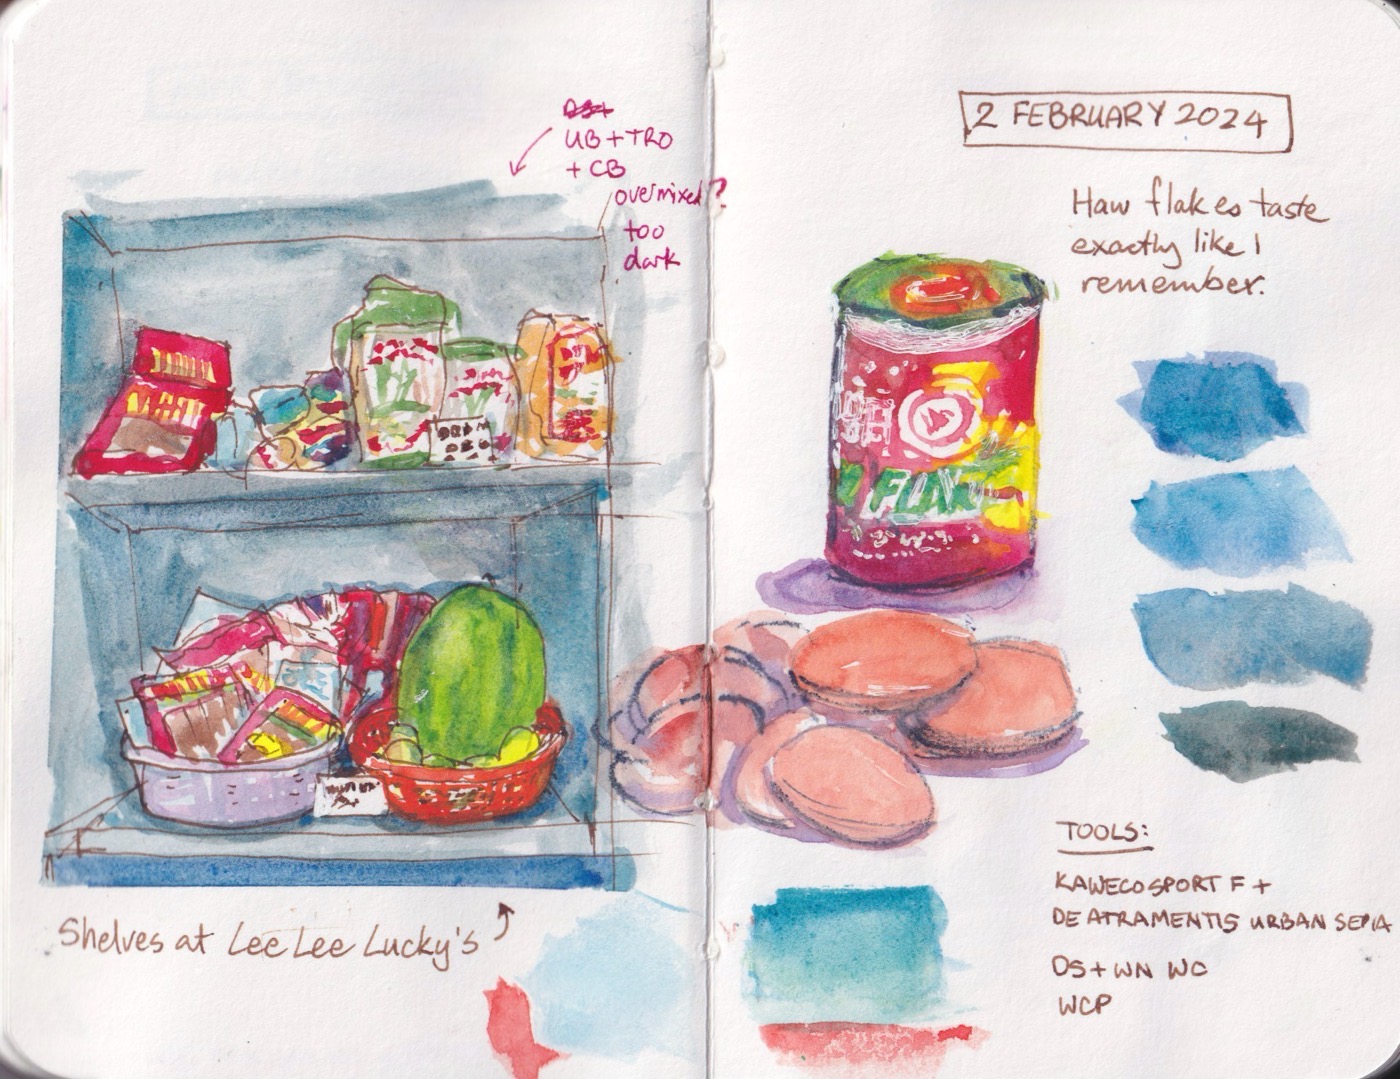 UB+TRO
+ CB
overmixed?
too
dark
Shelves at Lee Lee Lucky's
2 FEBRUARY 2024
Haw flakes taste
exactly like I
remember.
FLAK
TOOLS:
KAWECO SPORT F +
DE ATRAMENTIS URBAN SEPIA
DS + WN WC
WCP